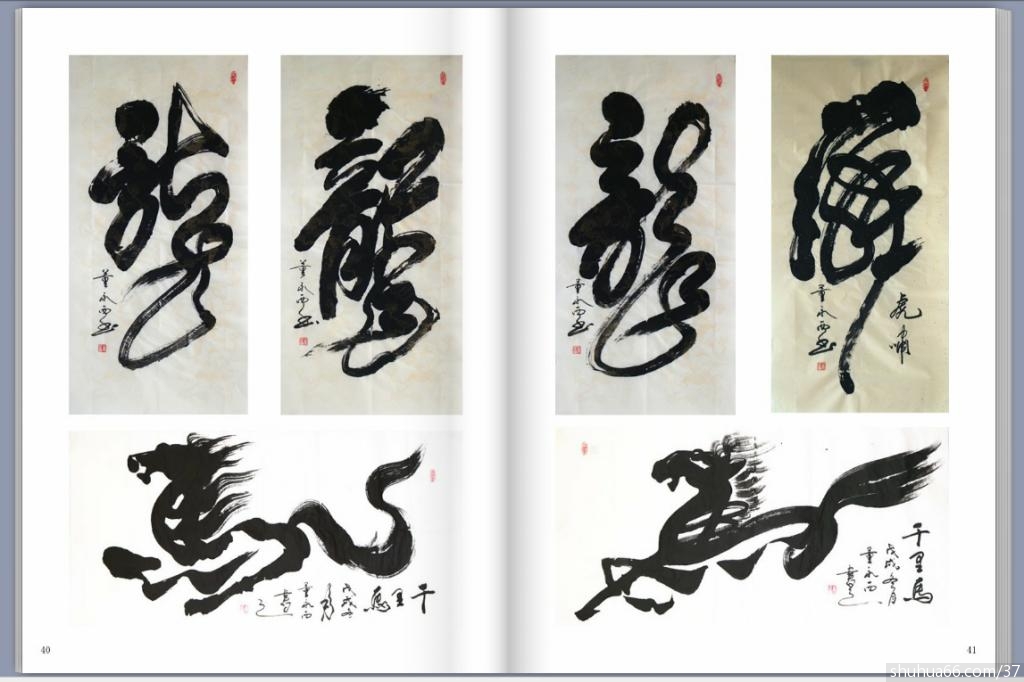 龍
董永西书
龍
董永西书
龍
董永西书
虎
虎啸
董永西书
馬
千里馬
戊戌冬
董永西
書
千里馬
戊戌冬月
董永西
書
40
41
shuhua66.com/37